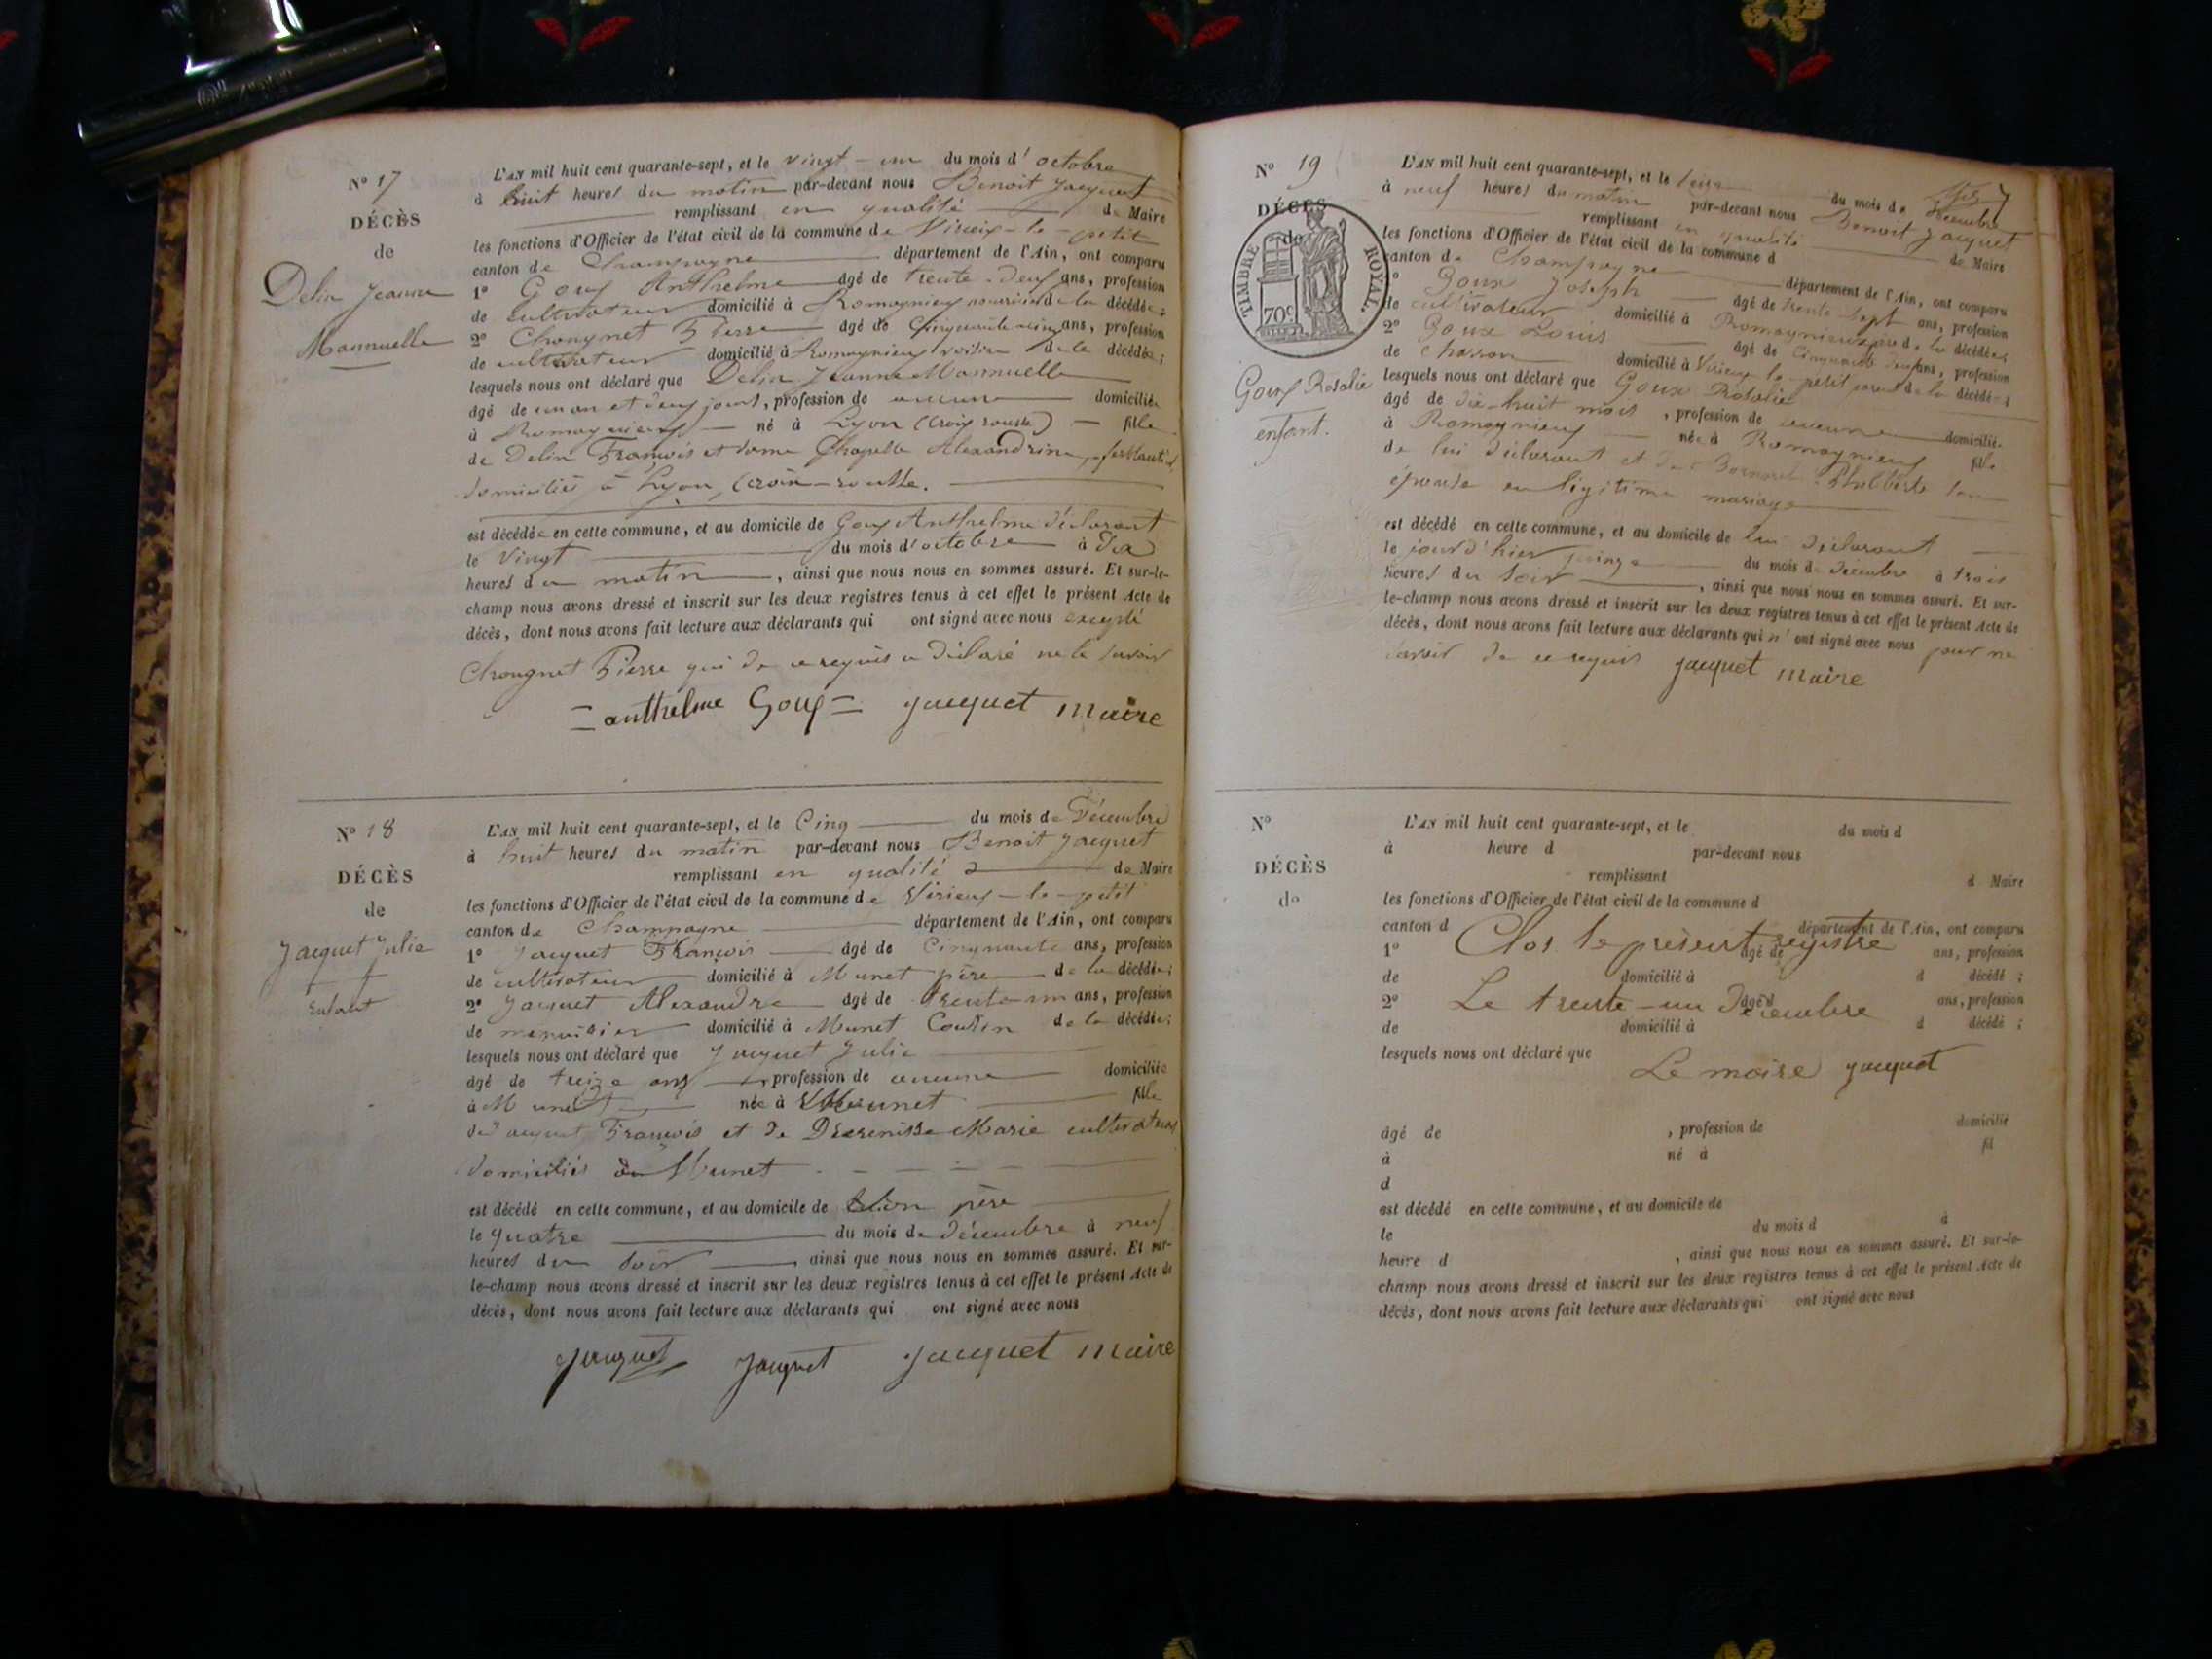 N° 17
DÉCÈS
de
Delin Jeanne
Mannuelle
L'AN mil huit cent quarante-sept, et le vingt-un du mois d'octobre
à huit heures du matin par-devant nous Benoit Jacquet
remplissant en qualité de Maire
les fonctions d'Officier de l'état civil de la commune de Virieux-le-petit
canton de Champagne département de l'Ain, ont comparu
1° Goux Anthelme âgé de trente-deux ans, profession
de cultivateur domicilié à Romagnieux de la décédée;
2° Chongnet Pierre âgé de ans, profession
de cultivateur domicilié à Romagnieux voisin de la décédée;
lesquels nous ont déclaré que Delin Jeanne Mannuelle
âgé de un an et deux jours, profession de aucune domiciliée
à Romagnieux né à Lyon (Croix rousse) fille
de Delin François et dame Chapelle Alexandrine,
domiciliés à Lyon, Croix-rousse.
est décédée en cette commune, et au domicile de Goux Anthelme déclarant
le vingt du mois d'octobre à dix
heures du matin, ainsi que nous nous en sommes assuré. Et sur-le-
champ nous avons dressé et inscrit sur les deux registres tenus à cet effet le présent Acte de
décès, dont nous avons fait lecture aux déclarants qui ont signé avec nous excepté
Chongnet Pierre qui de ce requis a déclaré ne le savoir
anthelme Goux jacquet maire
N° 18
DÉCÈS
de
Jacquet Julie
Enfant
L'AN mil huit cent quarante-sept, et le Cinq du mois de Décembre
à huit heures du matin par-devant nous Benoit Jacquet
remplissant en qualité de Maire
les fonctions d'Officier de l'état civil de la commune de Virieux-le-petit
canton de Champagne département de l'Ain, ont comparu
1° Jacquet François âgé de Cinquante ans, profession
de cultivateur domicilié à Munet père de la décédée;
2° Jacquet Alexandre âgé de trente-un ans, profession
de menuisier domicilié à Munet Cousin de la décédée;
lesquels nous ont déclaré que Jacquet Julie
âgé de treize ans, profession de aucune domiciliée
à Munet née à Munet fille
de Jacquet François et de Marie cultivateurs
domiciliés à Munet
est décédé en cette commune, et au domicile de son père
le quatre du mois de décembre à neuf
heures du soir ainsi que nous nous en sommes assuré. Et sur-
le-champ nous avons dressé et inscrit sur les deux registres tenus à cet effet le présent Acte de
décès, dont nous avons fait lecture aux déclarants qui ont signé avec nous
jacquet Jacquet jacquet maire
N° 19
DÉCÈS
de
TIMBRE ROYAL.
70c
Goux Rosalie
enfant.
L'AN mil huit cent quarante-sept, et le seize du mois de Décembre
à neuf heures du matin par-devant nous Benoit Jacquet
remplissant en qualité de Maire
les fonctions d'Officier de l'état civil de la commune d
canton de Champagne département de l'Ain, ont comparu
1° Goux Joseph âgé de trente sept ans, profession
de cultivateur domicilié à Romagnieux père de la décédée;
2° Goux Louis âgé de ans, profession
de charron domicilié à Virieux-le-petit de la décédée;
lesquels nous ont déclaré que Goux Rosalie
âgé de dix-huit mois, profession de aucune domiciliée
à Romagnieux née à Romagnieux fille
de lui déclarant et de Philiberte son
épouse en légitime mariage
est décédé en cette commune, et au domicile de lui déclarant
le jour d'hier quinze du mois de décembre à trois
heures du soir, ainsi que nous nous en sommes assuré. Et sur-
le-champ nous avons dressé et inscrit sur les deux registres tenus à cet effet le présent Acte de
décès, dont nous avons fait lecture aux déclarants qui n'ont signé avec nous pour ne
savoir de ce requis jacquet maire
N°
DÉCÈS
de
L'AN mil huit cent quarante-sept, et le du mois d
à heure d par-devant nous
remplissant d Maire
les fonctions d'Officier de l'état civil de la commune d
canton d département de l'Ain, ont comparu
Clos le présent registre
1° âgé de ans, profession
de domicilié à d décédé ;
2° âgé d ans, profession
Le trente-un Décembre
de domicilié à d décédé ;
lesquels nous ont déclaré que
Le maire jacquet
âgé de , profession de domicilié
à né à fil
d
est décédé en cette commune, et au domicile de
le du mois d à
heure d , ainsi que nous nous en sommes assuré. Et sur-le-
champ nous avons dressé et inscrit sur les deux registres tenus à cet effet le présent Acte de
décès, dont nous avons fait lecture aux déclarants qui ont signé avec nous